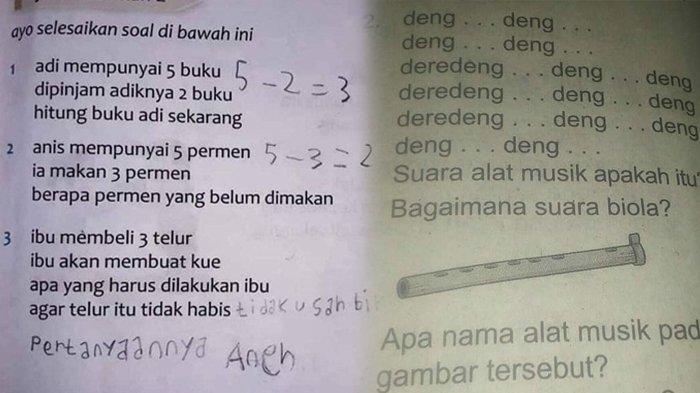 ayo selesaikan soal di bawah ini
1 adi mempunyai 5 buku 5 - 2 = 3
dipinjam adiknya 2 buku
hitung buku adi sekarang
2 anis mempunyai 5 permen 5 - 3 = 2
ia makan 3 permen
berapa permen yang belum dimakan
3 ibu membeli 3 telur
ibu akan membuat kue
apa yang harus dilakukan ibu
agar telur itu tidak habis tidak usah bi
Pertanyaannya Aneh
2. deng . . . deng . . .
deng . . . deng . . .
deredeng . . . deng . . . deng
deredeng . . . deng . . . deng
deredeng . . . deng . . . deng
deng . . . deng . . .
Suara alat musik apakah itu
Bagaimana suara biola?
Apa nama alat musik pad
gambar tersebut?